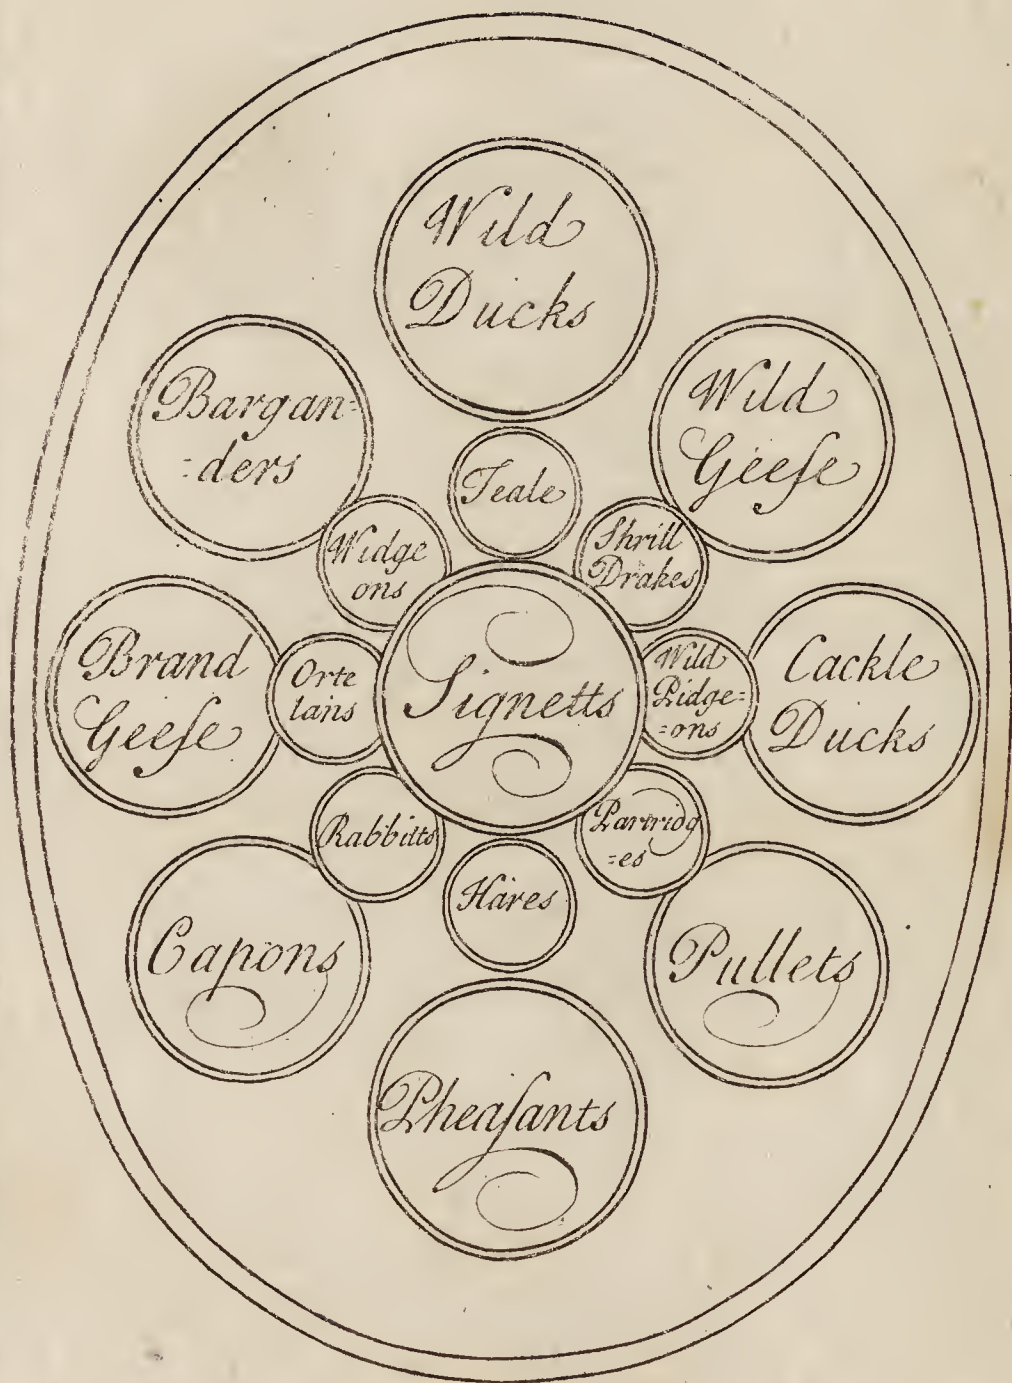 Wild
Ducks
Bargan-
=ders
Wild
Geeſe
Teale
Widge
ons
Shrill
Drakes
Brand
Geeſe
Orte
lans
Signetts
Wild
Pidge=
=ons
Cackle
Ducks
Rabbitts
Partridg
=es
Hares
Capons
Pullets
Pheaſants